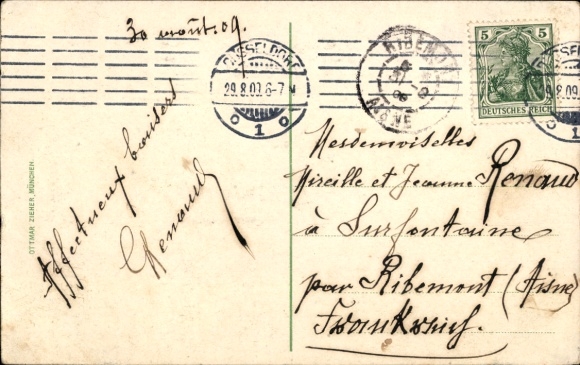 30 août.09.
DÜSSELDORF
29.8.09.6-7N
o 1 o
RIBEMONT
AISNE
5 5
DEUTSCHES REICH
Affectueux baisers
Renaud
OTTMAR ZIEHER, MÜNCHEN.
Mesdemoiselles
Mireille et Jeanne Renaud
à Surfontaine
par Ribemont (Aisne)
Frankreich.